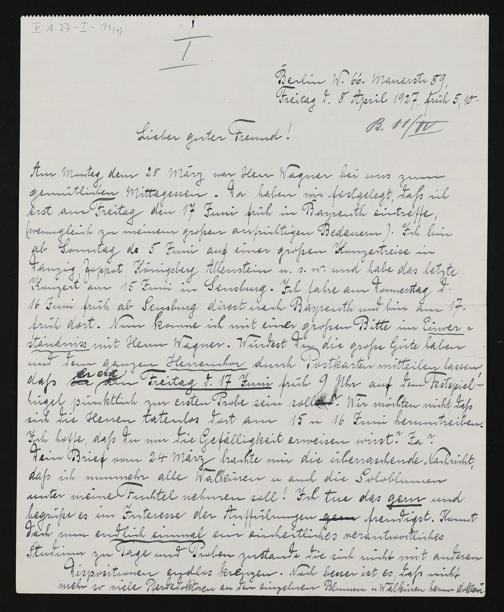 V A 27-I-11(1)
I
Berlin W. 66. Mauerstr 89,
Freitag d. 8 April 1927, früh 5,10.
B. 11/IV
Lieber guter Freund!
Am Montag dem 28 März war Herr Wagner bei uns zum
gemütlichen Mittagessen. Da haben wir festgelegt, daß ich
erst am Freitag den 17 Juni früh in Bayreuth eintreffe,
(wenngleich zu meinem großen aufrichtigen Bedauern). Ich bin
ab Sonntag d. 5 Juni auf einer großen Konzertreise in
Danzig, Zoppot Königsberg Allenstein u. s. w. und habe das letzte
Konzert am 15 Juni in Sensburg. Ich fahre am Donnerstag d.
16 Juni früh ab Sensburg direct nach Bayreuth und bin am 17.
früh dort. Nun komme ich mit einer großen Bitte im Einver=
ständniss mit Herrn Wagner. Würdest Du die große Güte haben
und dem ganzen Herrenchor durch Postkarten mitteilen lassen
daß er am Freitag d. 17 Juni früh 9 Uhr auf dem Festspiel-
hügel pünktlich zur ersten Probe sein soll? Wir möchten nicht daß
sich die Herren tatenlos dort am 15 u 16 Juni herumtreiben.
Ich hoffe, daß Du mir die Gefälligkeit erweisen wirst? Ja?
Dein Brief vom 24 März brachte mir die überraschende Nachricht,
daß ich nunmehr alle Walküren u auch die Soloblumen
unter meine Fuchtel nehmen soll! Ich tue das gern und
begrüße es im Interesse der Aufführungen freudigst. Kommt
doch nun endlich einmal ein einheitliches verantwortliches
Studium zu Tage und Proben zustande die sich nicht mit anderen
Dispositionen endlos kreuzen. Noch besser ist es, daß nicht
mehr so viele an den einzelnen Blumen u Walküren herum